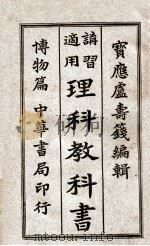 寶應盧壽籛編輯
講習適用
理科教科書
博物篇 中華書局印行